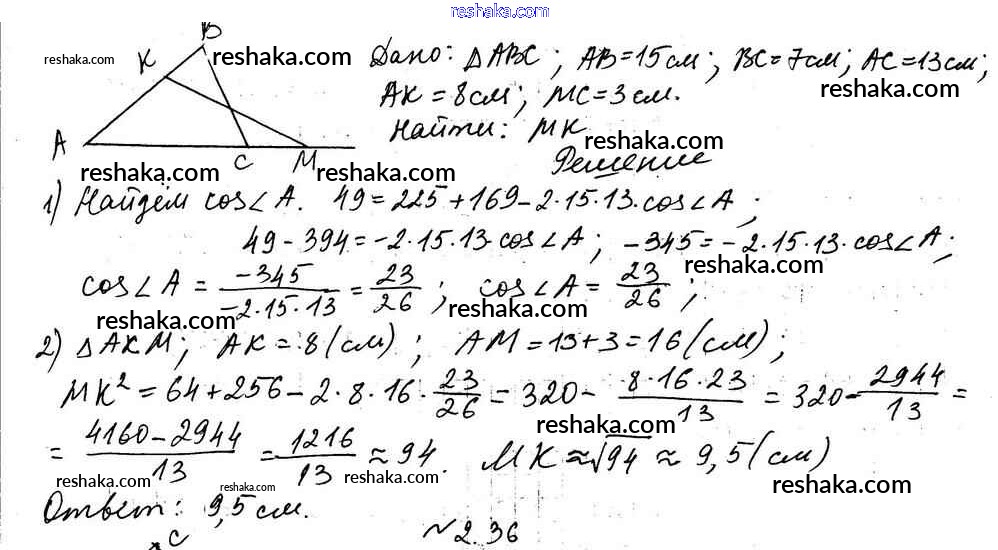 reshaka.com
B
reshaka.com K reshaka.com Дано: △ABC; AB=15см; BC=7см; AC=13см;
AK=8см; MC=3см. reshaka.com
A Найти: MK
C M reshaka.com
reshaka.com reshaka.com Решение
1) Найдём cos∠A. 49=225+169-2·15·13·cos∠A;
49-394=-2·15·13·cos∠A; -345=-2·15·13·cos∠A;
reshaka.com
cos∠A = -345/-2·15·13 = 23/26; cos∠A = 23/26;
reshaka.com reshaka.com
2) △AKM; AK=8(см); AM=13+3=16(см);
MK²=64+256-2·8·16·23/26=320-8·16·23/13=320-2944/13=
reshaka.com
=4160-2944/13=1216/13≈94. MK≈√94≈9,5(см)
reshaka.com reshaka.com reshaka.com
Ответ: 9,5см.
reshaka.com
C №2.36